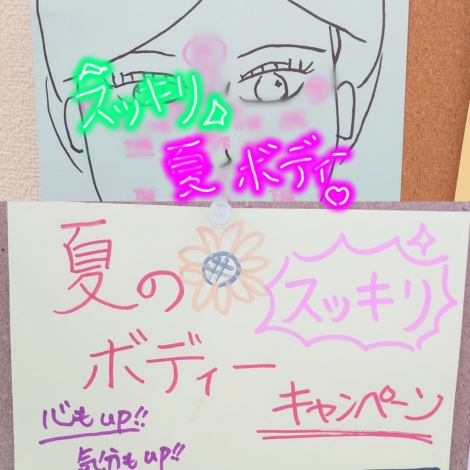 スッキリ
夏ボディー
夏の
スッキリ
ボディー
キャンペーン
心もup!!
気分もup!!